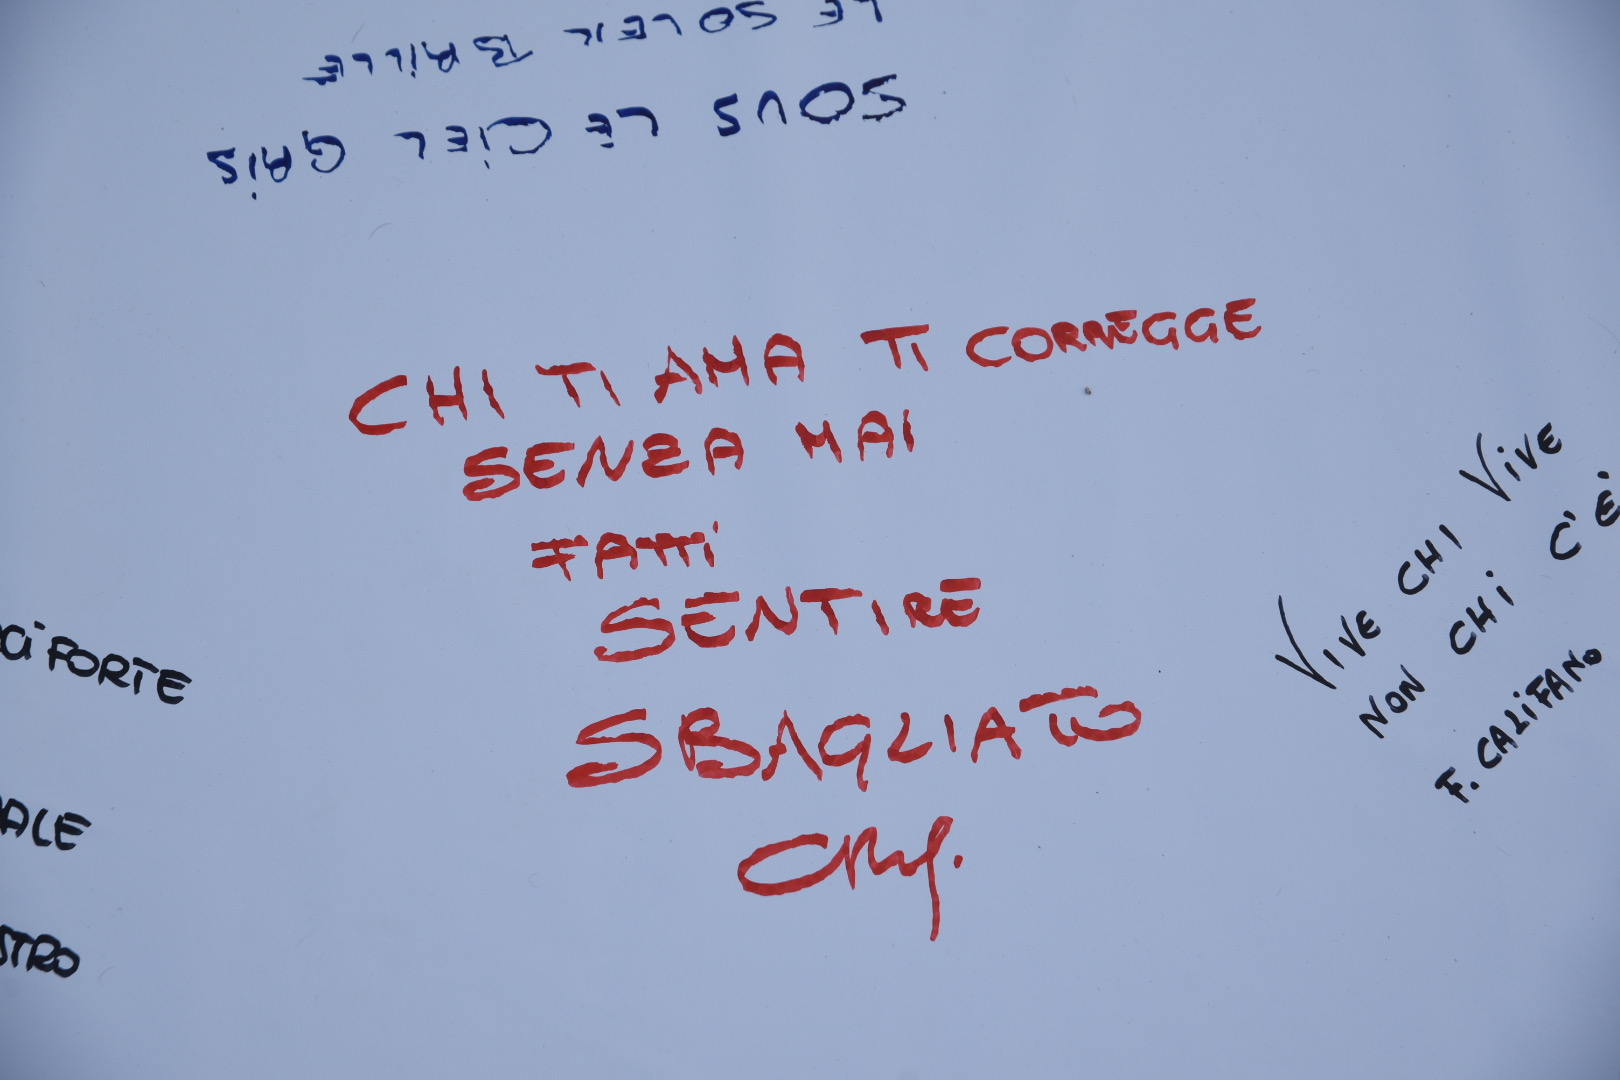 SOUS LE CIEL GRIS
LE SOLEIL BRILLE
CHI TI AMA TI CORREGGE
SENZA MAI
FATTI
SENTIRE
SBAGLIATO
VIVE CHI VIVE
NON CHI C'È
F. CALIFANO
FORTE